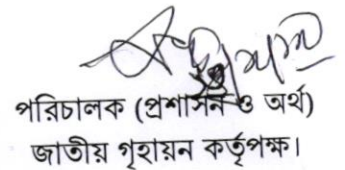 পরিচালক (প্রশাসন ও অর্থ)
জাতীয় গৃহায়ন কর্তৃপক্ষ।